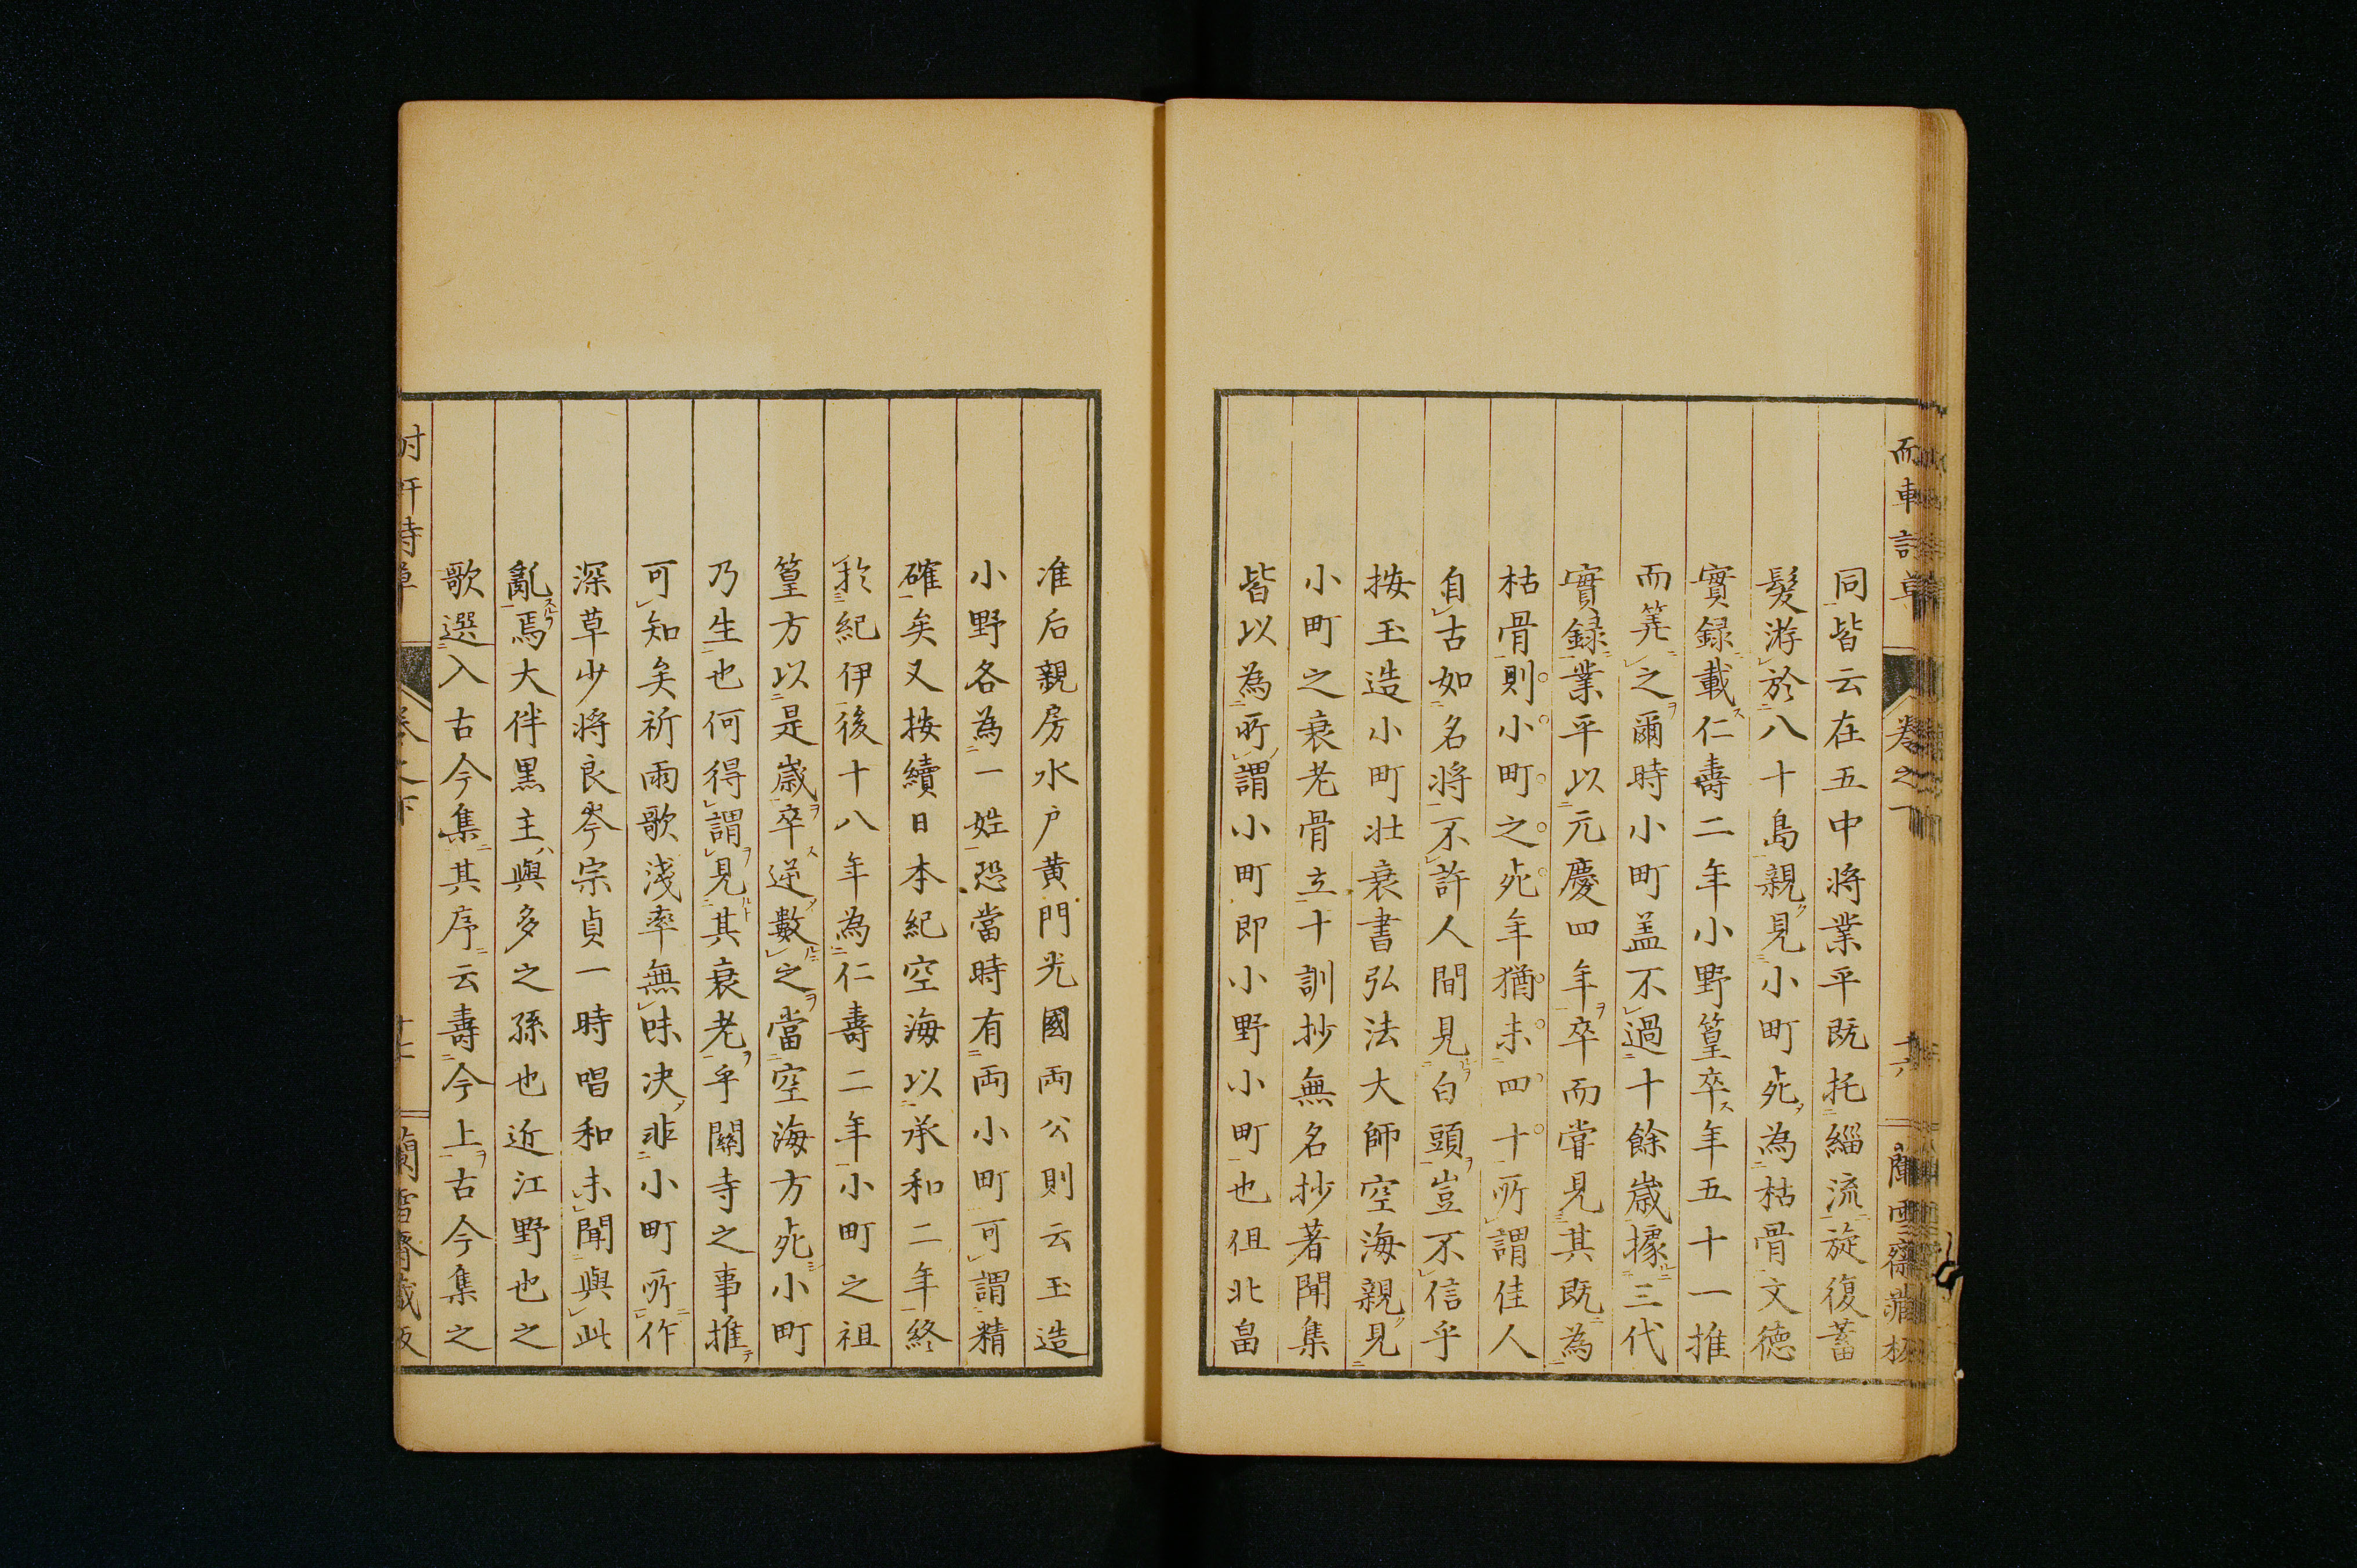 同皆云在五中將業平既托緇流旋復蓄
髮游於八十島親見小町死為枯骨文德
實録載仁壽二年小野篁卒年五十一推
而筭之爾時小町盖不過十餘歳據三代
實録業平以元慶四年卒而當見其既為
枯骨則小町之死年猶未四十所謂佳人
自古如名將不許人間見白頭豈不信乎
按玉造小町壯衰書弘法大師空海親見
小町之衰老骨立十訓抄無名抄著聞集
皆以為所謂小町即小野小町也但北畠
准后親房水戸黄門光國両公則云玉造
小野各為一姓恐當時有両小町可謂精
確矣又按續日本紀空海以承和二年終
於紀伊後十八年為仁壽二年小町之祖
篁方以是歳卒逆數之當空海方死小町
乃生也何得謂見其衰老乎關寺之事推
可知矣祈雨歌淺率無味决非小町所作
深草少將良岑宗貞一時唱和未聞與此
亂焉大伴黒主與多之孫也近江野也之
歌選入古今集其序云壽今上古今集之